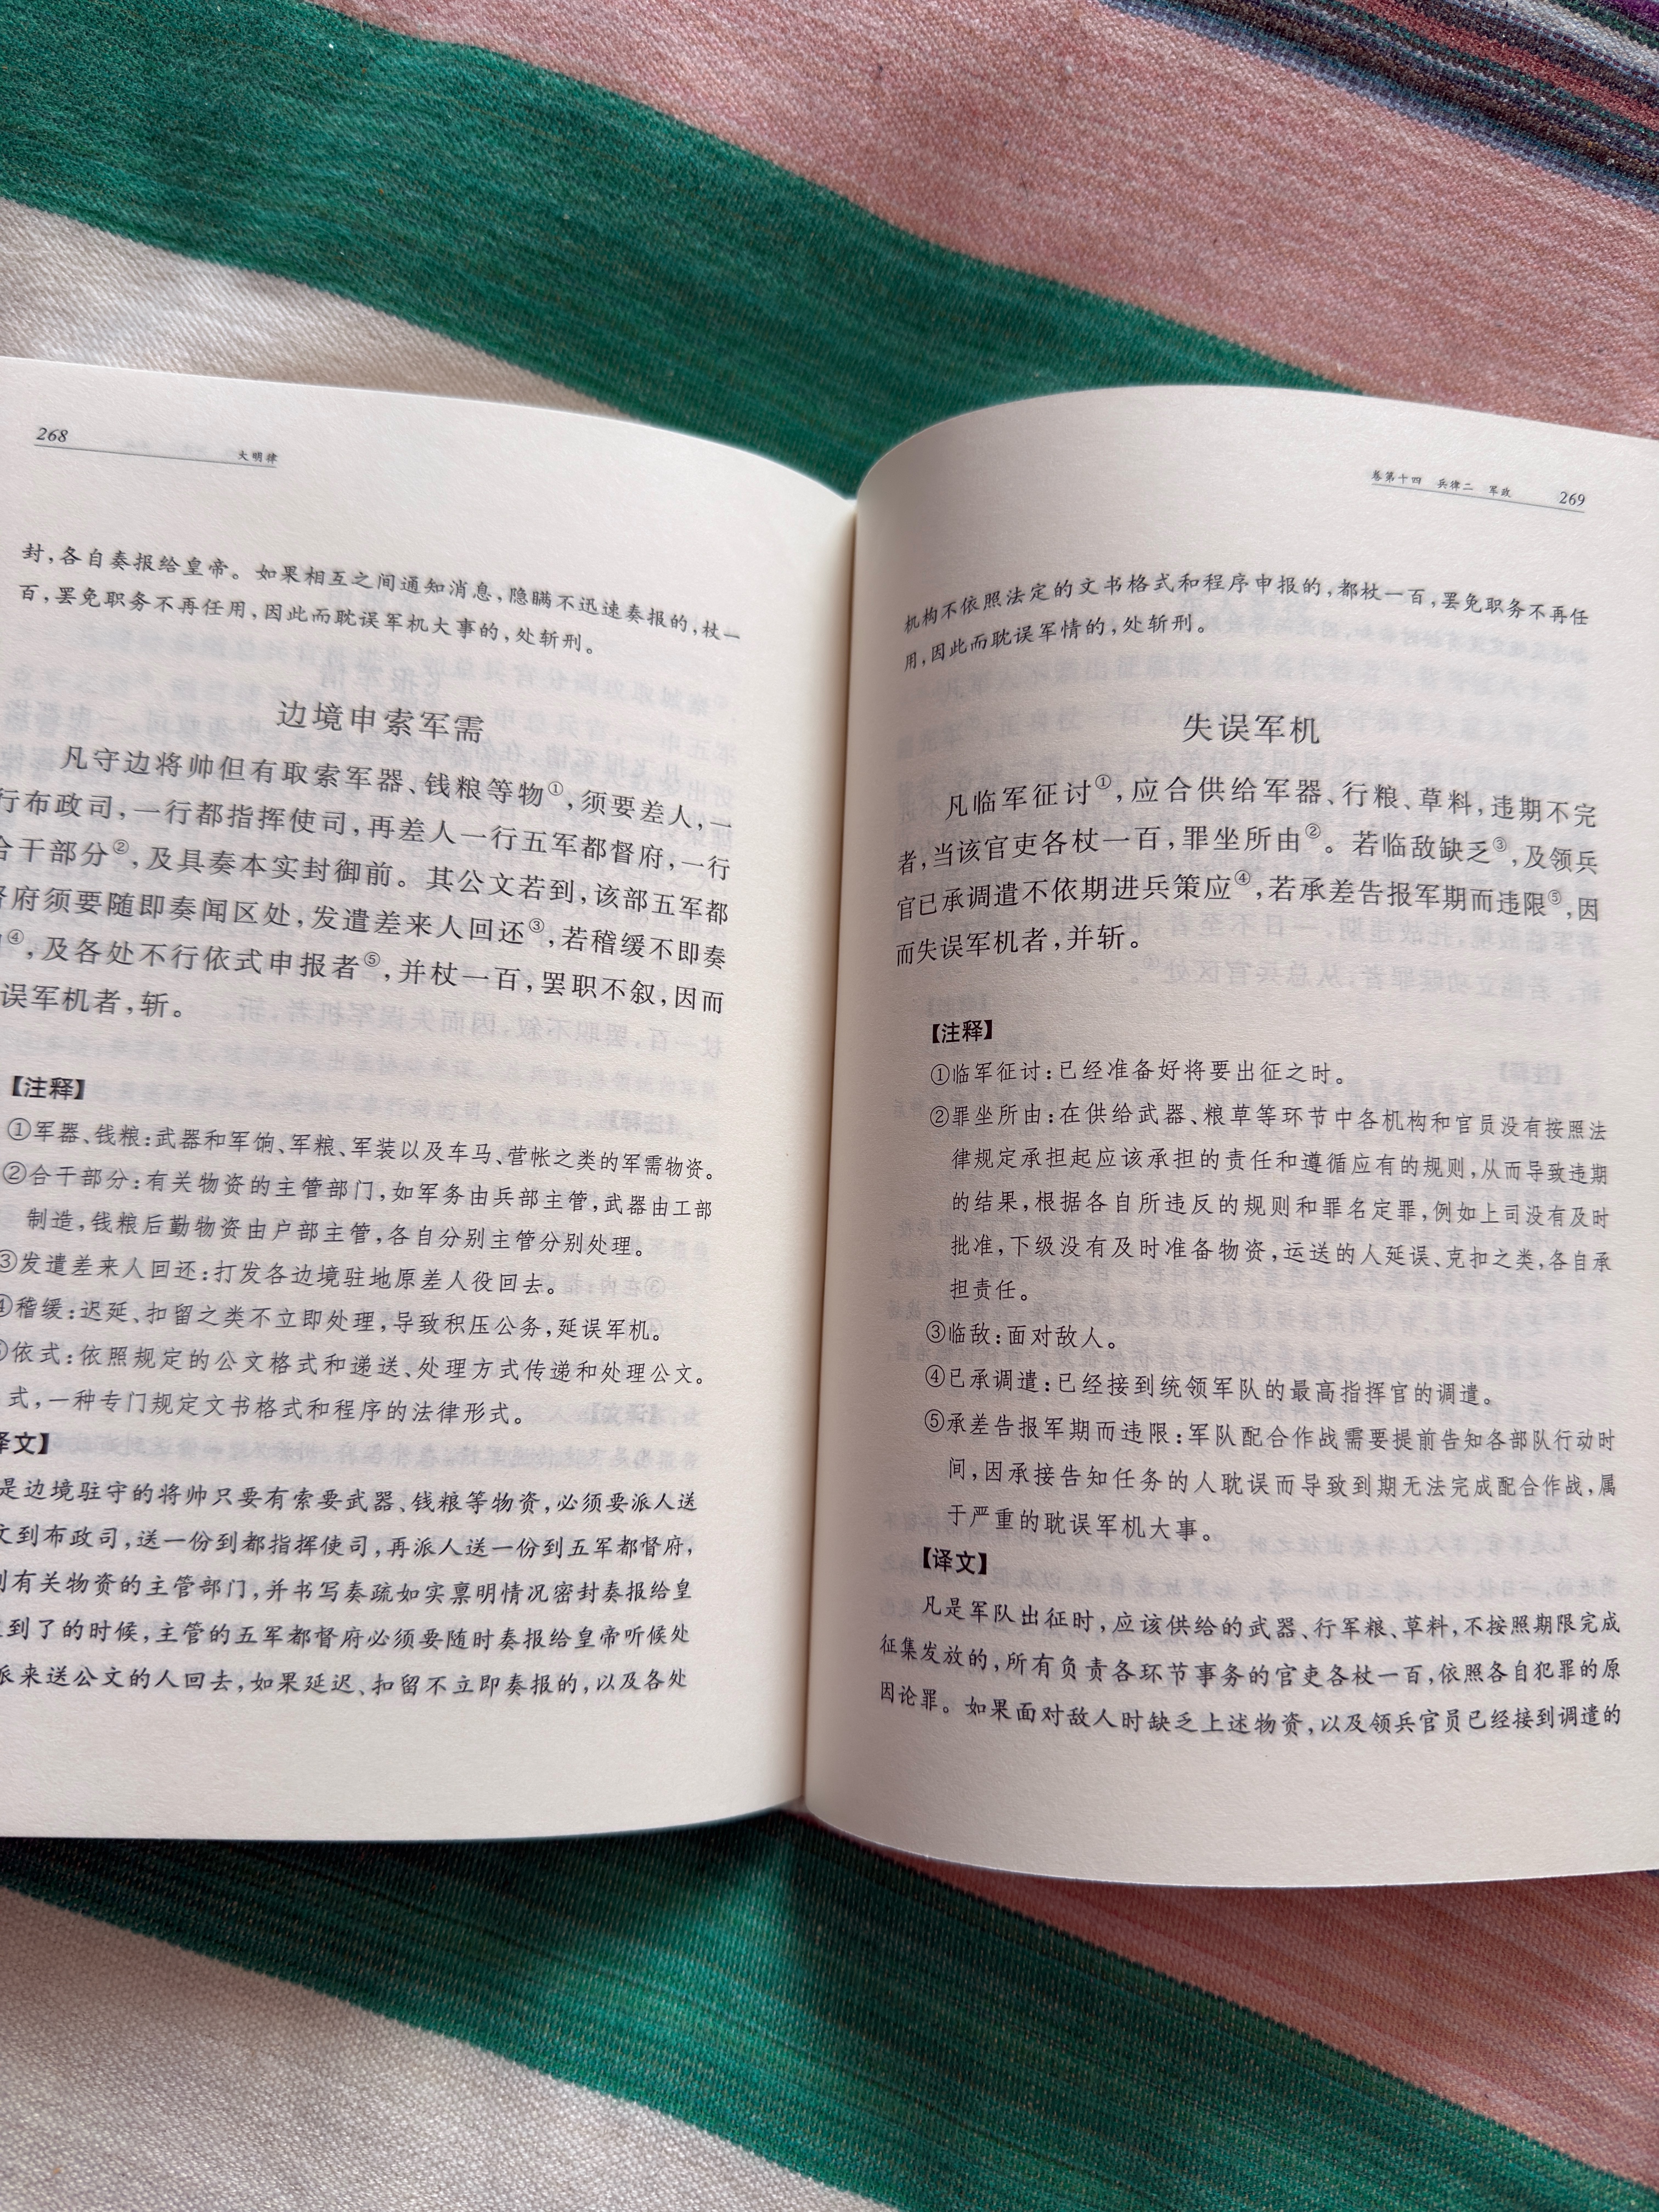 268
大明律
封,各自奏报给皇帝。如果相互之间通知消息,隐瞒不迅速奏报的,杖一
百,罢免职务不再任用,因此而耽误军机大事的,处斩刑。
边境申索军需
凡守边将帅但有取索军器、钱粮等物①,须要差人,一
行布政司,一行都指挥使司,再差人一行五军都督府,一行
合干部分②,及具奏本实封御前。其公文若到,该部五军都
督府须要随即奏闻区处,发遣差来人回还③,若稽缓不即奏
④,及各处不行依式申报者⑤,并杖一百,罢职不叙,因而
误军机者,斩。
【注释】
①军器、钱粮:武器和军饷、军粮、军装以及车马、营帐之类的军需物资。
②合干部分:有关物资的主管部门,如军务由兵部主管,武器由工部
制造,钱粮后勤物资由户部主管,各自分别主管分别处理。
③发遣差来人回还:打发各边境驻地原差人役回去。
④稽缓:迟延、扣留之类不立即处理,导致积压公务,延误军机。
⑤依式:依照规定的公文格式和递送、处理方式传递和处理公文。
式,一种专门规定文书格式和程序的法律形式。
译文】
是边境驻守的将帅只要有索要武器、钱粮等物资,必须要派人送
文到布政司,送一份到都指挥使司,再派人送一份到五军都督府,
到有关物资的主管部门,并书写奏疏如实禀明情况密封奏报给皇
到了的时候,主管的五军都督府必须要随时奏报给皇帝听候处
派来送公文的人回去,如果延迟、扣留不立即奏报的,以及各处
卷第十四 兵律二 军政
269
机构不依照法定的文书格式和程序申报的,都杖一百,罢免职务不再任
用,因此而耽误军情的,处斩刑。
失误军机
凡临军征讨①,应合供给军器、行粮、草料,违期不完
者,当该官吏各杖一百,罪坐所由②。若临敌缺乏③,及领兵
官已承调遣不依期进兵策应④,若承差告报军期而违限⑤,因
而失误军机者,并斩。
【注释】
①临军征讨:已经准备好将要出征之时。
②罪坐所由:在供给武器、粮草等环节中各机构和官员没有按照法
律规定承担起应该承担的责任和遵循应有的规则,从而导致违期
的结果,根据各自所违反的规则和罪名定罪,例如上司没有及时
批准,下级没有及时准备物资,运送的人延误、克扣之类,各自承
担责任。
③临敌:面对敌人。
④已承调遣:已经接到统领军队的最高指挥官的调遣。
⑤承差告报军期而违限:军队配合作战需要提前告知各部队行动时
间,因承接告知任务的人耽误而导致到期无法完成配合作战,属
于严重的耽误军机大事。
【译文】
凡是军队出征时,应该供给的武器、行军粮、草料,不按照期限完成
征集发放的,所有负责各环节事务的官吏各杖一百,依照各自犯罪的原
因论罪。如果面对敌人时缺乏上述物资,以及领兵官员已经接到调遣的